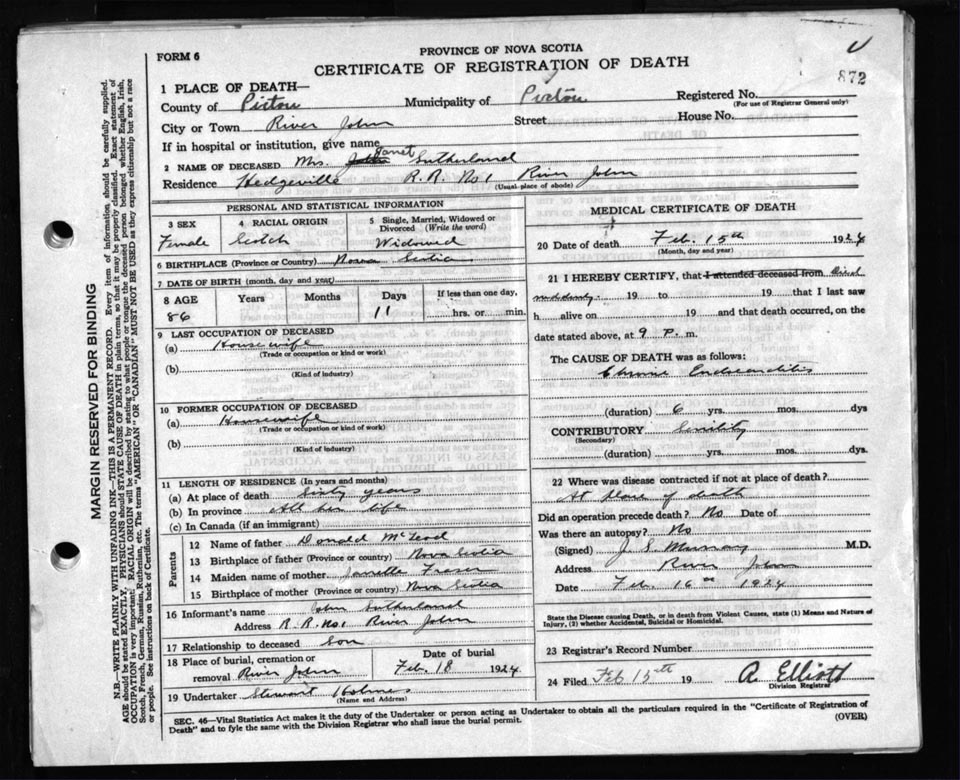 FORM 6
PROVINCE OF NOVA SCOTIA
CERTIFICATE OF REGISTRATION OF DEATH
872
1 PLACE OF DEATH—
County of Pictou Municipality of Pictou Registered No.
(For use of Registrar General only)
City or Town River John Street House No.
If in hospital or institution, give name
2 NAME OF DECEASED Mrs. Janet Sutherland
Residence Hedgeville R.R. No 1 River John
(Usual place of abode)
PERSONAL AND STATISTICAL INFORMATION
3 SEX 4 RACIAL ORIGIN 5 Single, Married, Widowed or Divorced (Write the word)
Female Scotch Widowed
6 BIRTHPLACE (Province or Country) Nova Scotia
7 DATE OF BIRTH (month, day and year)
8 AGE Years Months Days If less than one day,
86 11 hrs. or min.
9 LAST OCCUPATION OF DECEASED
(a) Housewife
(Trade or occupation or kind or work)
(b)
(Kind of industry)
10 FORMER OCCUPATION OF DECEASED
(a) Housewife
(Trade or occupation or kind or work)
(b)
(Kind of industry)
11 LENGTH OF RESIDENCE (In years and months)
(a) At place of death Sixty years
(b) In province All her life
(c) In Canada (if an immigrant)
Parents
12 Name of father Donald McLeod
13 Birthplace of father (Province or country) Nova Scotia
14 Maiden name of mother Janette Fraser
15 Birthplace of mother (Province or country) Nova Scotia
16 Informant's name John Sutherland
Address R.R. No 1 River John
17 Relationship to deceased Son
18 Place of burial, cremation or removal River John Date of burial Feb. 18 1924
19 Undertaker Stewart Holmes
(Name and Address)
MEDICAL CERTIFICATE OF DEATH
20 Date of death Feb. 15th 1924
(Month, day and year)
21 I HEREBY CERTIFY, that I attended deceased from Died
suddenly. 19 to 19 that I last saw
h alive on 19 and that death occurred, on
date stated above, at 9 P. m.
The CAUSE OF DEATH was as follows:
Chronic Endocarditis
(duration) 6 yrs. mos. dys
CONTRIBUTORY Senility
(Secondary)
(duration) yrs. mos. dys.
22 Where was disease contracted if not at place of death?
At place of death
Did an operation precede death? No Date of
Was there an autopsy? No
(Signed) J. S. Murray M.D.
Address River John
Date Feb. 16th 1924
State the Disease causing Death, or in death from Violent Causes, state (1) Means and Nature of
Injury, (2) whether Accidental, Suicidal or Homicidal.
23 Registrar's Record Number
24 Filed Feb 15th 19 A. Elliott
Division Registrar
SEC. 46—Vital Statistics Act makes it the duty of the Undertaker or person acting as Undertaker to obtain all the particulars required in the "Certificate of Registration of
Death" and to fyle the same with the Division Registrar who shall issue the burial permit.
(OVER)
MARGIN RESERVED FOR BINDING
N.B.—WRITE PLAINLY WITH UNFADING INK—THIS IS A PERMANENT RECORD. Every item of information should be carefully supplied.
AGE should be stated EXACTLY. PHYSICIANS should STATE CAUSE OF DEATH in plain terms, so that it may be properly classified. Exact statement of
OCCUPATION is very important. RACIAL ORIGIN will be described by stating to what people or tongue the deceased person belonged whether English, Irish,
Scotch, French, German, Russian, Ruthenian, etc. The terms "AMERICAN" OR "CANADIAN" MUST NOT BE USED as they express citizenship but not a race
or people. See instructions on back of Certificate.